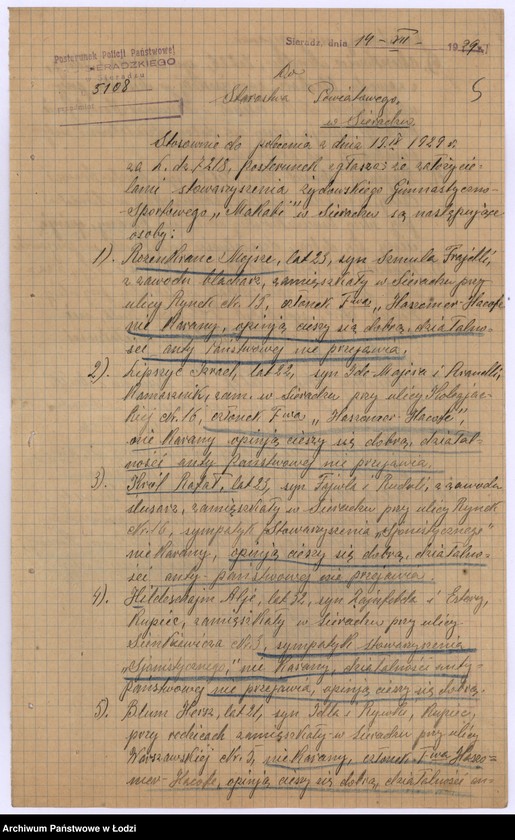 Sieradz, dnia 14 - VII - 1929 r.
Posterunek Policji Państwowej
SIERADZKIEGO
5108
5
Do
Starostwa Powiatowego,
w Sieradzu
Stosownie do polecenia z dnia 19 IV 1929 r.
za L. dz. 7213, posterunek zgłasza że założycie-
lami stowarzyszenia żydowskiego Gimnastyczno-
Sportowego „Makabi" w Sieradzu są następujące
osoby:
1). Rozenkranc Mojsze, lat 23, syn Szmula Frajdli,
z zawodu blacharz, zamieszkały w Sieradzu przy
ulicy Rynek Nr. 15, członek T-wa „Haszomer-Hacofe
nie karany, opinją cieszy się dobrą, działalno-
ści anty Państwowej nie przejawia,
2). Lipszyc Izrael, lat 22, syn Ide Majera i
Kamasznik, zam. w Sieradzu przy ulicy Kolegjac-
kiej Nr. 16, członek T-wa „Haszomer-Hacofe",
nie karany opinją cieszy się dobrą, działal-
ności anty Państwowej nie przejawia.
3). Król Rafał, lat 23, syn Fajwla i Rudli, z zawodu
ślusarz, zamieszkały w Sieradzu przy ulicy Rynek
Nr. 16, sympatyk Stowarzyszenia „Sjonistycznego"
nie karany, opinją cieszy się dobrą, działalno-
ści anty-państwowej nie przejawia.
4). Hildeschajm Alje, lat 32, syn i Estery,
Kupiec, zamieszkały w Sieradzu przy ulicy
Sienkiewicza Nr. 3, sympatyk stowarzyszenia
„Sjonistycznego," nie karany, działalności anty-
państwowej nie przejawia, opinją cieszy się dobrą.
5). Blum Hersz, lat 21, syn Idla i Rywki, Kupiec,
przy rodzicach zamieszkały w Sieradzu przy ulicy
Warszawskiej Nr. 5, nie karany, członek T-wa Haszo-
mer-Hacofe, opinją cieszy się dobrą, działalności an-
Archiwum Państwowe w Łodzi